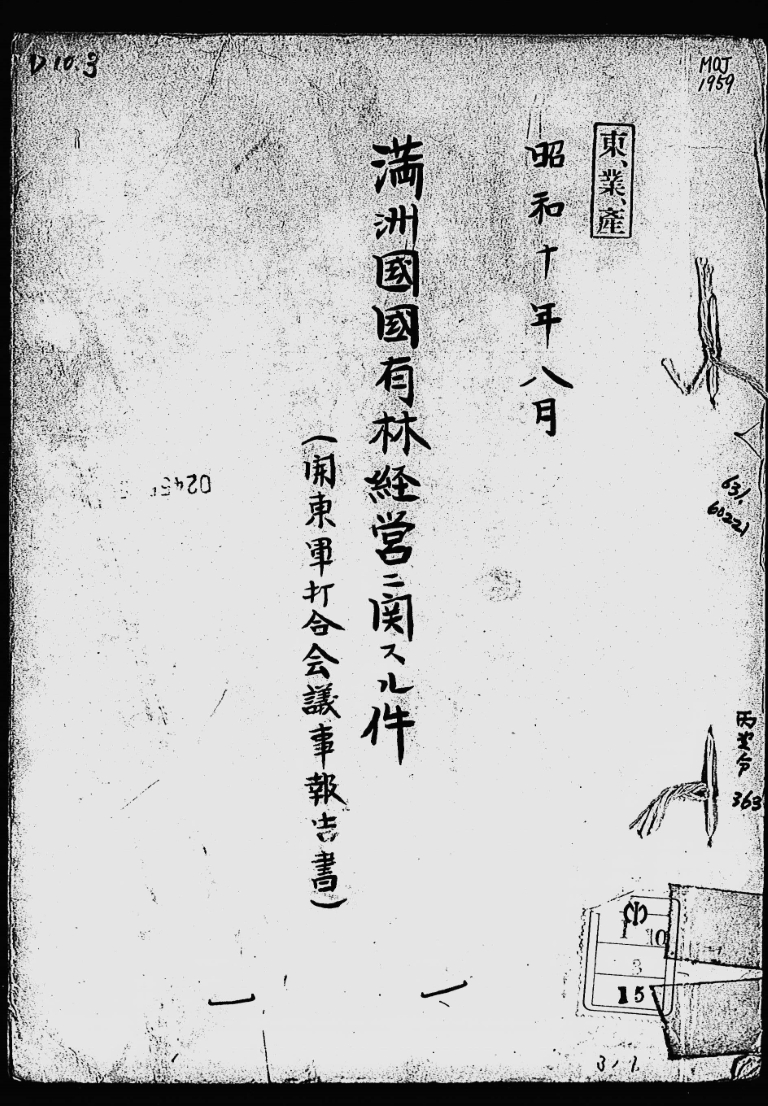 D 10.3
MOJ
1959
東、業、産
昭和十年八月
満洲國國有林経営ニ関スル件
(関東軍打合会議事報告書)
631.
60221
363
10
3
15
3/1.